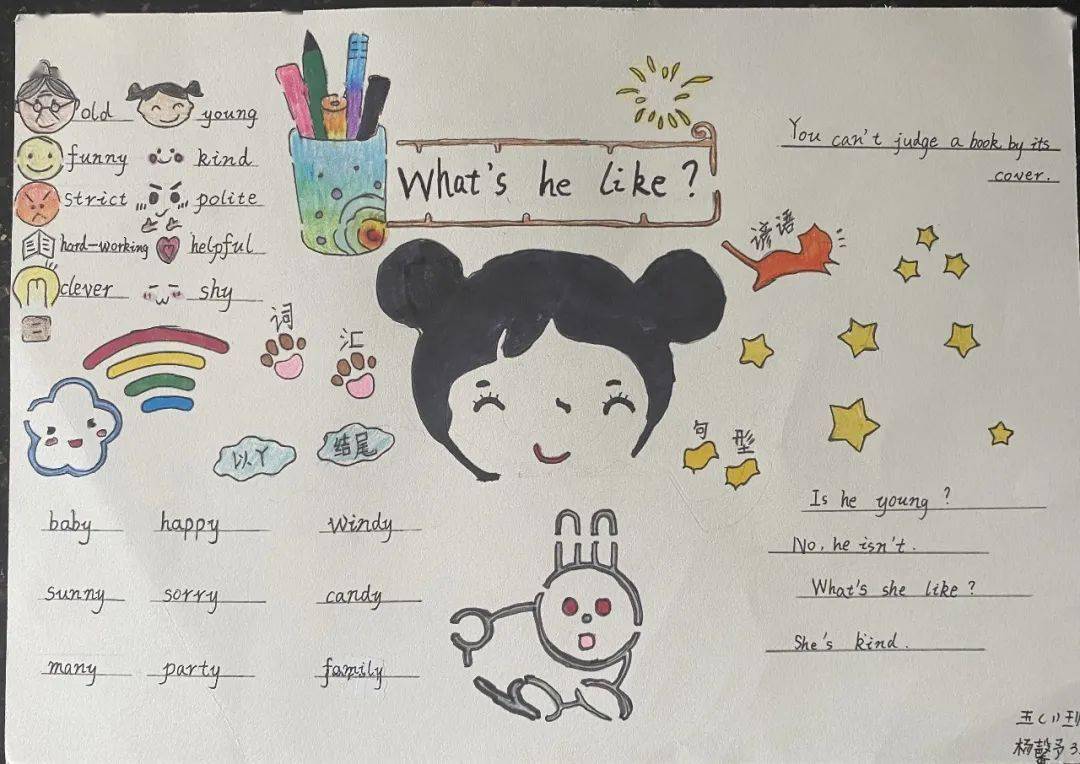 What's he like?
old young
funny kind
strict polite
hard-working helpful
clever shy
词汇
以y结尾
baby happy windy
sunny sorry candy
many party family
谚语
You can't judge a book by its
cover.
句型
Is he young?
No, he isn't.
What's she like?
She's kind.
五(1)班
杨馨予 3